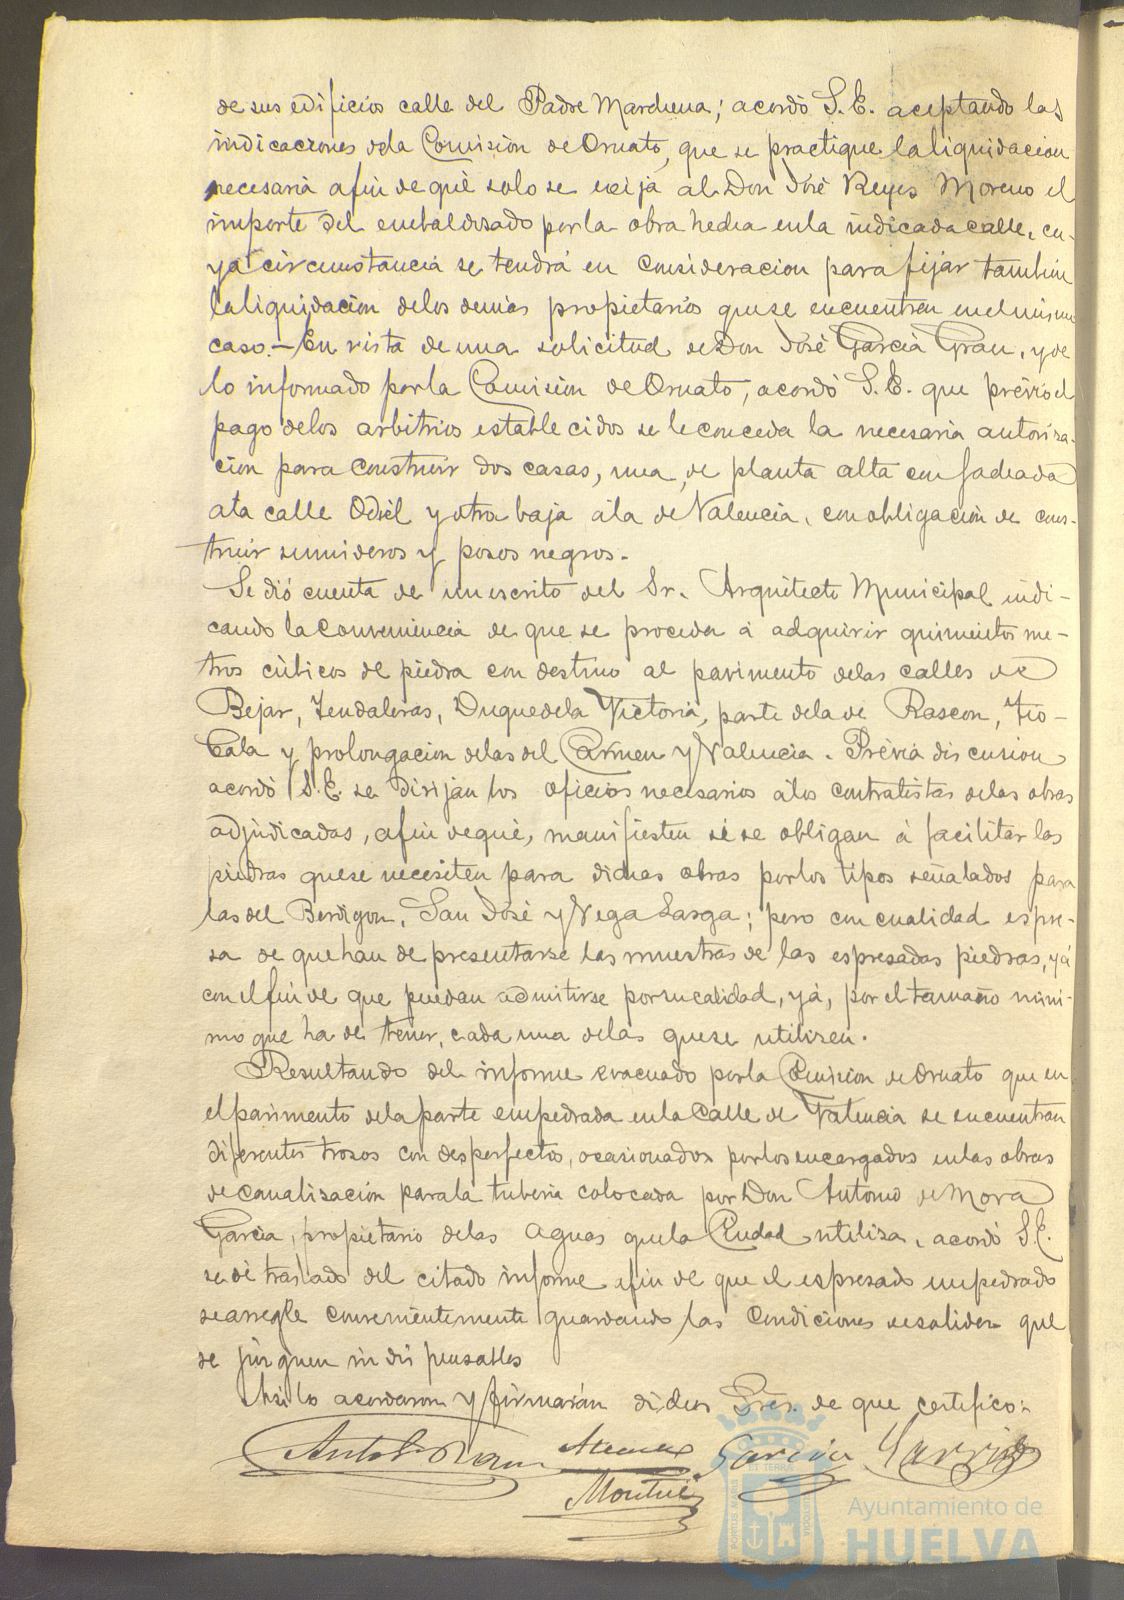 de sus edificios calle del Padre Marchena; acordó S.E. aceptando las
indicaciones dela Comisión de Ornato, que se practique la liquidacion
necesaria afin de que solo se exija al Don José Reyes Moreno el
importe del embaldosado por la obra hecha en la indicada calle, cu-
ya circunstancia se tendrá en consideracion para fijar tambien
la liquidacion de los demás propietarios que se encuentran en el mismo
caso.- En vista de una solicitud de Don José Garcia Grau, y de
lo informado por la Comisión de Ornato, acordó S.E. que prévio el
pago delos arbitrios establecidos se le conceda la necesaria autoriza-
cion para construir dos casas, una, de planta alta con fachada
ata calle Odiel y otra baja ála de Valencia, con obligación de cons-
truir sumideros y posos negros.
Se dió cuenta de un escrito del Sr. Arquitecto Municipal indi-
cando la conveniencia de que se proceda á adquirir quinientos me-
tros cúbicos de piedra con destino al pavimento delas calles de
Bejar, Tendaleras, Duque dela Victoria, parte dela de Rascon, Tio-
Cala y prolongacion delas del Carmen y Valencia. Prévia discusion
acordó S.E. se dirijan los oficios necesarios alos contratistas delas obras
adjudicadas, afin de que, manifiesten si se obligan á facilitar las
piedras que se necesiten para dichas obras por los tipos señalados para
las del Berdigon, San José y Vega Larga; pero con cualidad espre-
sa de que han de presentarse las muestras de las espresadas piedras, yá
con el fin de que puedan admitirse por su calidad, yá, por el tamaño míni-
mo que ha de tener, cada una delas que se utilisen.
Resultando del informe evacuado por la Comision de Ornato que en
el pavimento dela parte empedrada en la Calle de Valencia se encuentran
diferentes trosos con desperfectos, ocasionados por los encargados en las obras
de canalización para la tuberia colocada por Don Antonio de Mora
Garcia, propietario delas aguas que la Ciudad utiliza, acordó S.E.
se dé traslado del citado informe afin de que el espresado empedrado
se arregle convenientemente guardando las condiciones de solidez que
se júzguen indispensables
Asi lo acordaron y firmarán dichos Sres. de que certifico:
Garcia Garrido
Ayuntamiento de
HUELVA